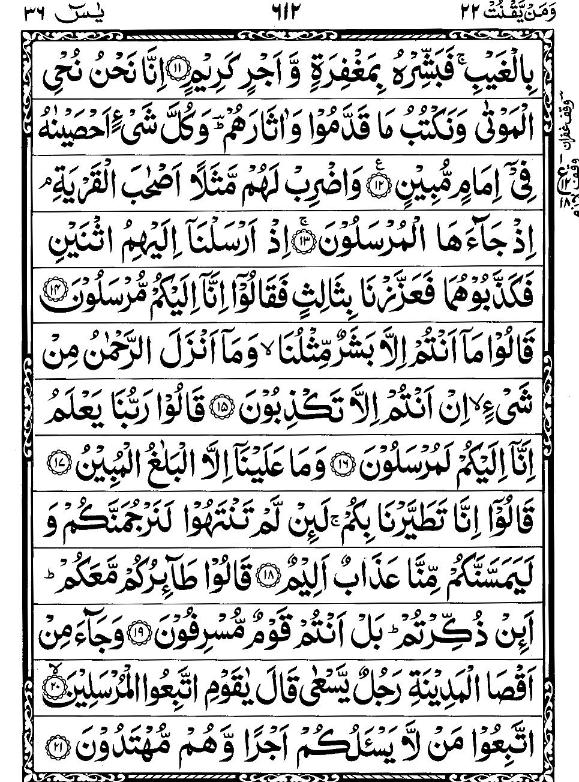 وَمَنْ يَّقْنُتْ ٢٢ ٦١٢ يٰسٓ ٣٦
بِالْغَيْبِ ۚ فَبَشِّرْهُ بِمَغْفِرَةٍ وَّ اَجْرٍ كَرِيْمٍ ﴿١١﴾ اِنَّا نَحْنُ نُحْيِ
الْمَوْتٰى وَنَكْتُبُ مَا قَدَّمُوْا وَاٰثَارَهُمْ ؕ وَكُلَّ شَىْءٍ اَحْصَيْنٰهُ
فِىْۤ اِمَامٍ مُّبِيْنٍ ﴿١٢﴾ ع وَاضْرِبْ لَهُمْ مَّثَلًا اَصْحٰبَ الْقَرْيَةِ ۘ
اِذْ جَآءَهَا الْمُرْسَلُوْنَ ﴿١٣﴾ ۚ اِذْ اَرْسَلْنَاۤ اِلَيْهِمُ اثْنَيْنِ
فَكَذَّبُوْهُمَا فَعَزَّزْنَا بِثَالِثٍ فَقَالُوْۤا اِنَّاۤ اِلَيْكُمْ مُّرْسَلُوْنَ ﴿١٤﴾
قَالُوْا مَاۤ اَنْتُمْ اِلَّا بَشَرٌ مِّثْلُنَا ۙ وَمَاۤ اَنْزَلَ الرَّحْمٰنُ مِنْ
شَىْءٍ ۙ اِنْ اَنْتُمْ اِلَّا تَكْذِبُوْنَ ﴿١٥﴾ قَالُوْا رَبُّنَا يَعْلَمُ
اِنَّاۤ اِلَيْكُمْ لَمُرْسَلُوْنَ ﴿١٦﴾ وَمَا عَلَيْنَاۤ اِلَّا الْبَلٰغُ الْمُبِيْنُ ﴿١٧﴾
قَالُوْۤا اِنَّا تَطَيَّرْنَا بِكُمْ ۚ لَئِنْ لَّمْ تَنْتَهُوْا لَنَرْجُمَنَّكُمْ وَ
لَيَمَسَّنَّكُمْ مِّنَّا عَذَابٌ اَلِيْمٌ ﴿١٨﴾ قَالُوْا طَآئِرُكُمْ مَّعَكُمْ ؕ
اَئِنْ ذُكِّرْتُمْ ؕ بَلْ اَنْتُمْ قَوْمٌ مُّسْرِفُوْنَ ﴿١٩﴾ وَجَآءَ مِنْ
اَقْصَا الْمَدِيْنَةِ رَجُلٌ يَّسْعٰى قَالَ يٰقَوْمِ اتَّبِعُوا الْمُرْسَلِيْنَ ﴿٢٠﴾ ۙ
اتَّبِعُوْا مَنْ لَّا يَسْئَلُكُمْ اَجْرًا وَّهُمْ مُّهْتَدُوْنَ ﴿٢١﴾
وقف غفران